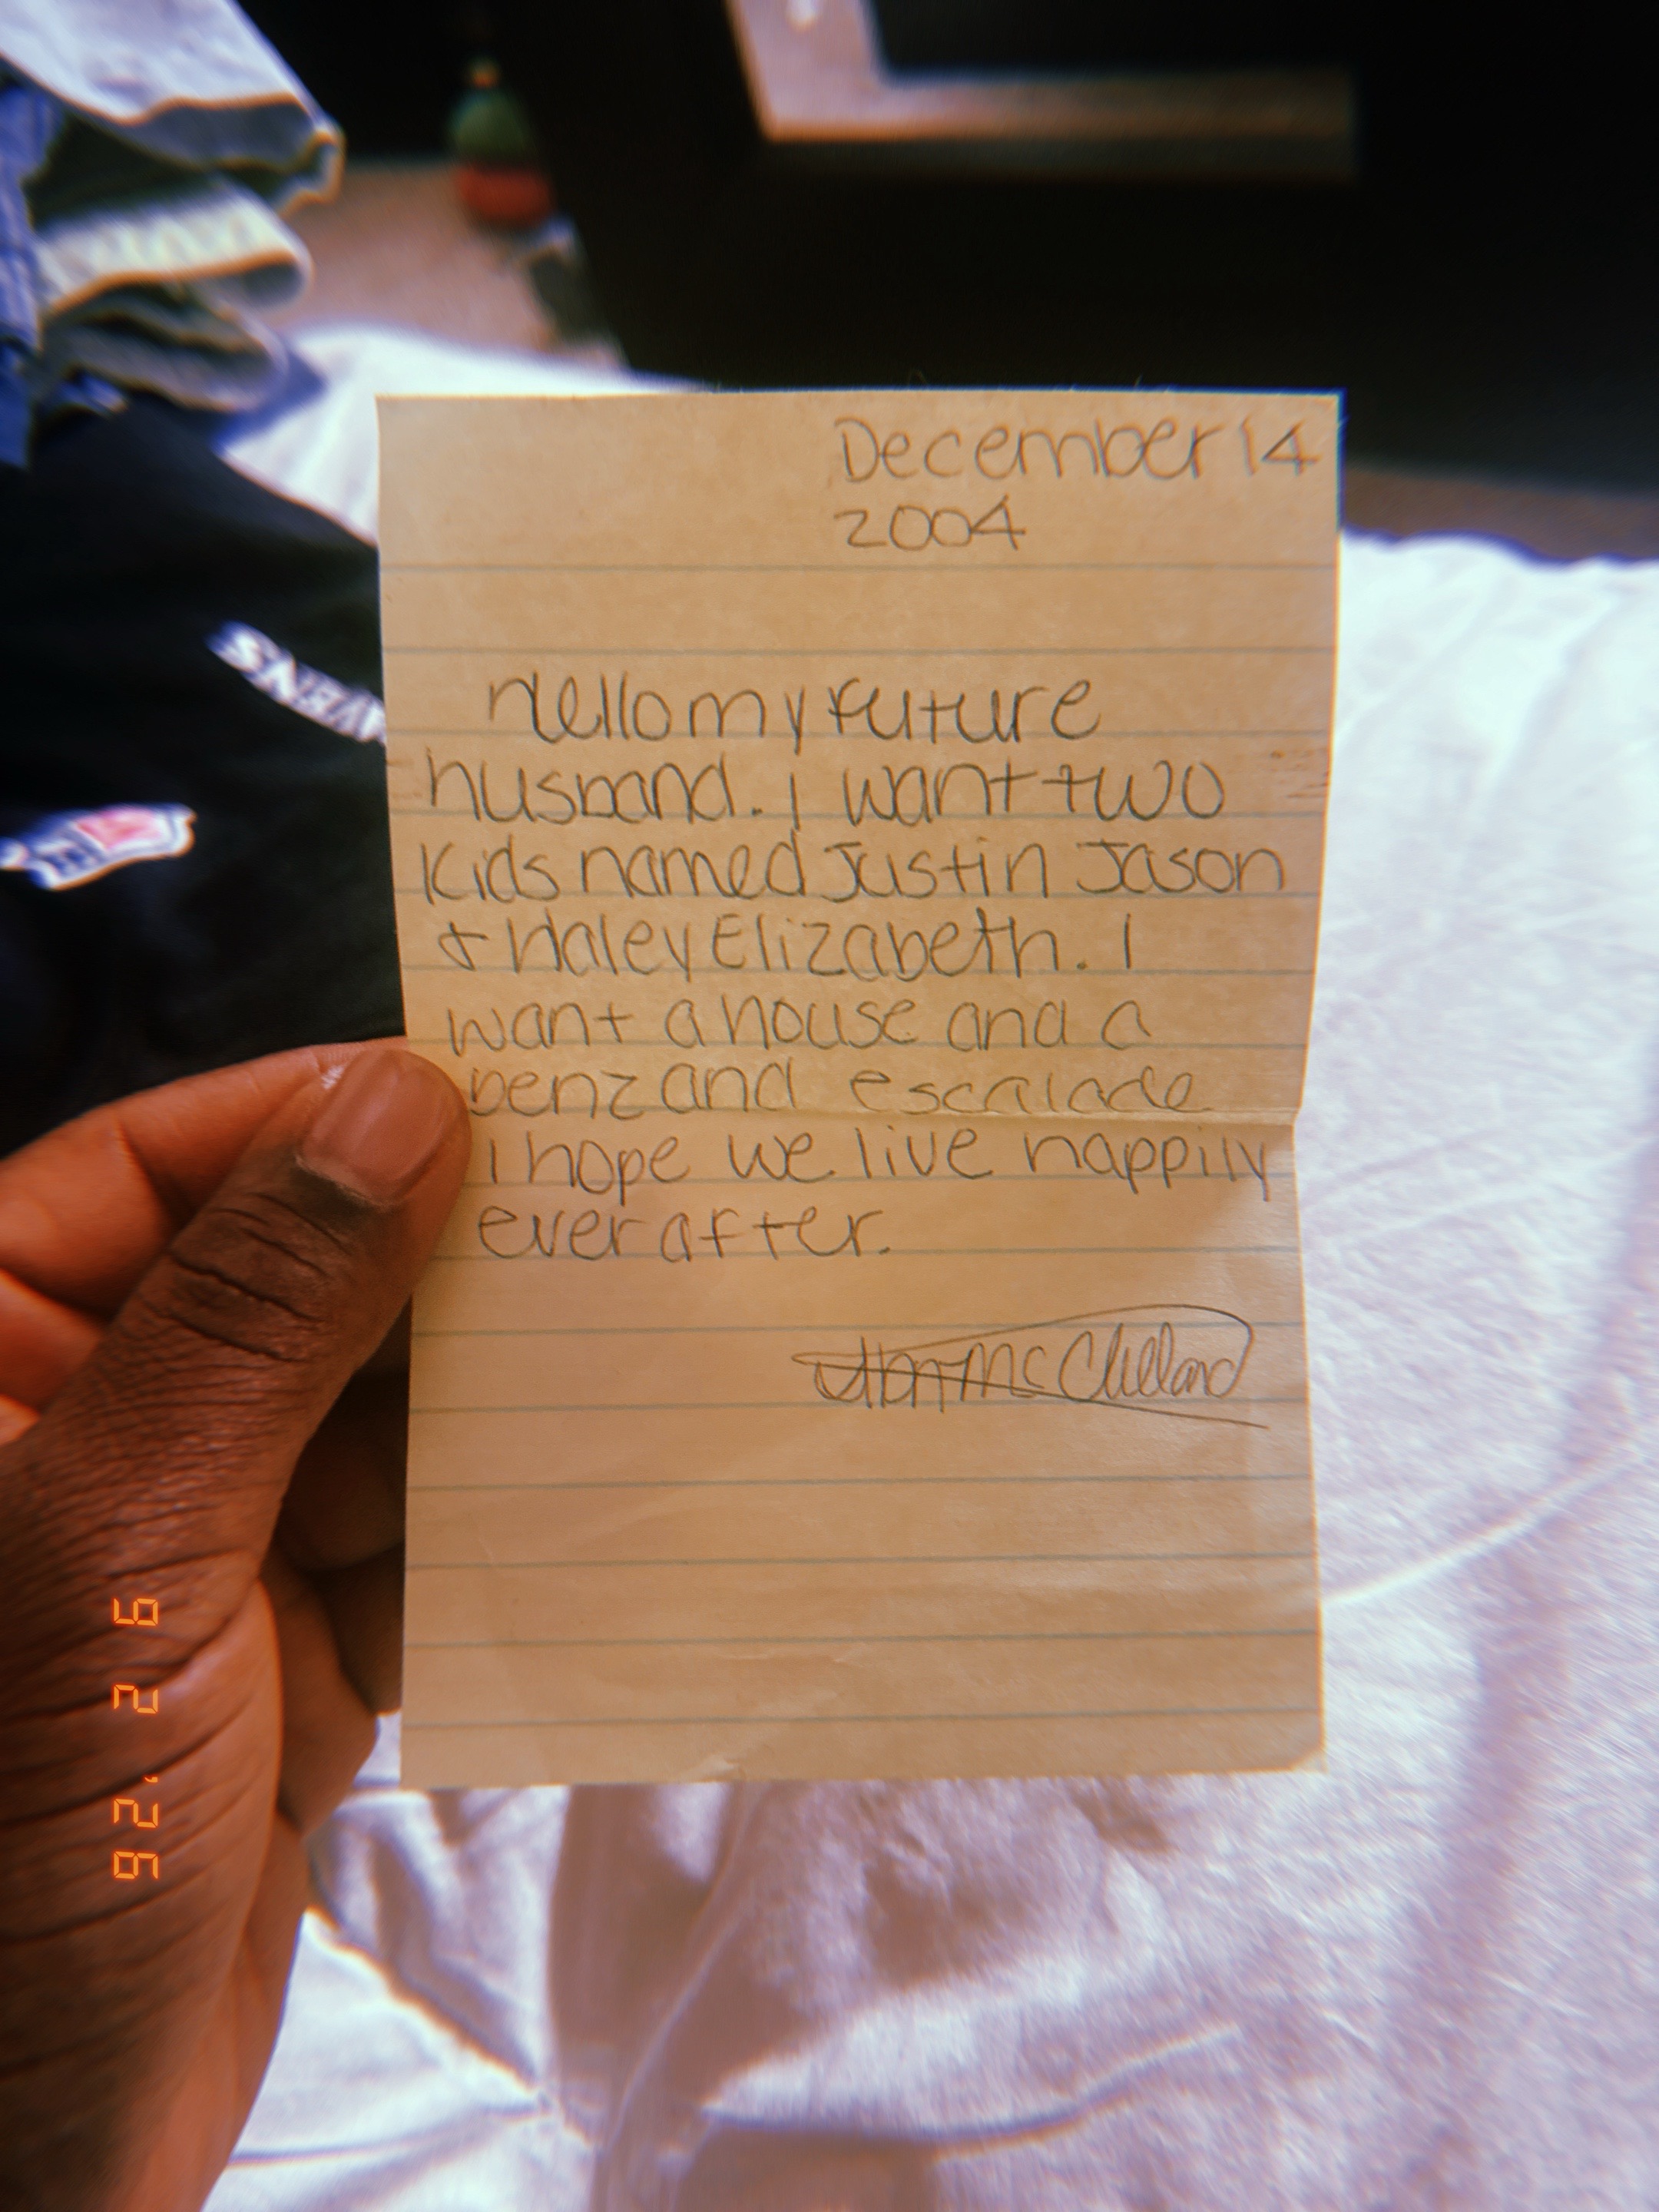 December 14
2004
Hello my future
husband. I want two
Kids named Justin Jason
& Haley Elizabeth. I
want a house and a
benz and escalade
I hope we live happily
ever after.
McClelland
VENS
6 2 '26